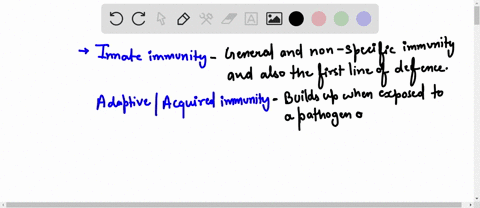 → Innate immunity - General and non-specific immunity
and also the first line of defence.
Adaptive / Acquired immunity - Builds up when exposed to
a pathogen o